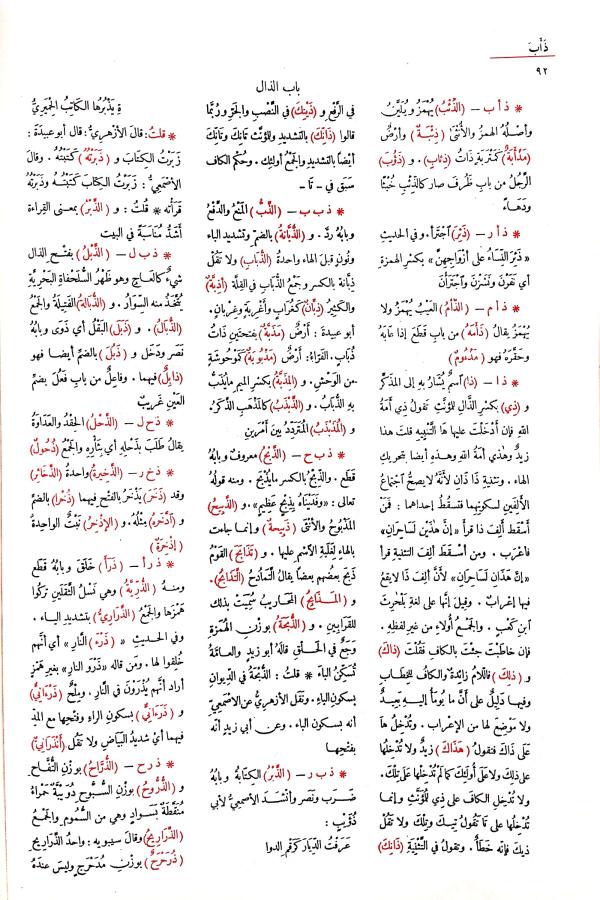 ذَأَبَ
٩٢
باب الذال
* ذ أ ب – (الذِّئْبُ) يُهْمَزُ وَيُلَيَّنُ
وأصْلُهُ الهمزُ والأنثَى (ذِئْبَةٌ) وأرْضٌ
(مَذْأَبَةٌ) كَمَتْرَبَةٍ ذاتُ (ذِئَابٍ). و (ذَؤُبَ)
الرَّجُلُ من بابِ ظَرُفَ صار كالذِّئْبِ خُبْثًا
ودَهَاءً
* ذ أ ر – (ذَئِرَ) اجْتَرأ. وفي الحديثِ
«ذَئِرَ النِّسَاءُ على أزْوَاجِهِنَّ» بكسْرِ الهمزةِ
أي نَفَرْنَ ونَشَزْنَ واجْتَرَأْنَ
* ذ أ م – (الذَّأْمُ) العَيْبُ يُهْمَزُ ولا
يُهْمَزُ يقالُ (ذَأَمَهُ) من بابِ قَطَعَ إذا عَابَهُ
وحَقَّرَهُ فهو (مَذْءُومٌ)
* ذ ا – (ذا) اسمٌ يُشَارُ به إلى المذَكَّرِ
و (ذِي) بكسْرِ الذَّالِ للمُؤَنَّثِ تَقولُ ذِي أَمَةُ
اللهِ فإن أدْخَلْتَ عليها هَا التَّنْبِيهِ قلتَ هذا
زيدٌ وهٰذي أمَةُ اللهِ وهٰذهِ أيضا بتحريكِ
الهاء. وتثنيةُ ذا ذَانِ لأنَّهُ لا يصحُّ اجْتماعُ
الألفَينِ لسكونِهِما فتسقُطُ إحداهما : فَمَنْ
أسْقطَ ألفَ ذا قرأ «إنَّ هٰذَيْنِ لَسَاحِرَانِ»
فأعْرَبَ. ومن أسْقَطَ ألِفَ التثنيةِ قرأ
«إنَّ هٰذَانِ لَسَاحِرَانِ» لأنَّ ألِفَ ذَا لا يقعُ
فيها إعْرَابٌ. وقيلَ إنَّها على لغةِ بَلْحَرِثِ
ابنِ كَعْبٍ. والجَمْعُ أُولاءِ من غيرِ لفظِهِ.
فإن خاطَبْتَ جِئْتَ بالكافِ فقُلْتَ (ذَاكَ)
و (ذلكَ) فاللامُ زائدةٌ والكافُ للخِطَابِ
وفيها دَلِيلٌ على أنَّ ما يُومَأُ إليهِ بَعِيدٌ
ولا مَوْضِعَ لها من الإعْرابِ. وتُدْخِلُ هَا
عَلَى ذَاكَ فتقولُ (هَذَاكَ) زيدٌ ولا تُدْخِلُها
على ذلكَ ولا على أُولئكَ كما لَمْ تُدْخِلْها على تِلْكَ.
ولا تُدْخِلِ الكافَ على ذِي للمُؤَنَّثِ وإنما
تُدْخِلُها على تَا تَقُولُ تِيكَ وتِلْكَ ولا تَقُلْ
ذِيكَ فإنه خَطَأٌ. وتقولُ في التَّثْنِيَةِ (ذَانِكَ)
في الرَّفْعِ و (ذَيْنِكَ) في النَّصْبِ والجَرِّ ورُبَّما
قالوا (ذَانِّكَ) بالتشديد وللمُؤَنَّثِ تَانِكَ وتَانِّكَ
أيضًا بالتشديد والجَمْعُ أولئك. وحُكْمُ الكافِ
سَبَقَ في – تَا –
* ذ ب ب – (الذَّبُّ) المَنْعُ والدَّفْعُ
وبابهُ رَدَّ. و (الذُّبَّانَةُ) بالضمِّ وتشديدِ الباءِ
ونُونٍ قبلَ الهاء واحدةُ (الذُّبَابِ) ولا تَقُلْ
ذِبَّانة بالكسرِ وجمعُ الذُّبابِ في القِلَّةِ (أذِبَّةٌ)
والكثيرُ (ذِبَّانٌ) كغُرابٍ وأغْرِبَةٍ وغِرْبانٍ.
أبو عبيدةَ : أرْضٌ (مَذَبَّةٌ) بفتحتينِ ذَاتُ
ذُبَاب. الفَرَّاءُ: أرْضٌ (مَذْبُوبَةٌ) كمَوْحُوشَةٍ
من الوَحْشِ. و (المِذَبَّةُ) بكسْرِ الميمِ ما يُذَبُّ
بهِ الذُّبَابُ. و (الذَّبْذَبُ) كالمَذْهَبِ الذَّكَرُ
و (المُذَبْذَبُ) المُتَرَدِّدُ بينَ أمْرَينِ
* ذ ب ح – (الذَّبْحُ) معروفٌ وبابُهُ
قَطَعَ. والذِّبْحُ بالكسرِ ما يُذْبَحُ. ومنه قولُهُ
تعالى : «وفَدَيْنَاهُ بِذِبْحٍ عَظِيمٍ». و (الذَّبِيحُ)
المَذْبُوحُ والأُنْثَى (ذَبِيحَةٌ) وإنما جاءت
بالهاءِ لغَلَبَةِ الاسْمِ عليها. و (تَذَابَحَ) القَوْمُ
ذَبَحَ بعضُهم بعضًا يقالُ التَّمَادُحُ (التَّذَابُحُ).
و (المَذَابِحُ) المحارِيبُ سُمِّيَتْ بذلكَ
للقَرَابِينِ. و (الذُّبَحَةُ) بوزنِ الهُمَزَةِ
وَجَعٌ في الحَلْقِ قالهُ أبو زيدٍ والعامَّةُ
تُسَكِّنُ الباءَ * قلتُ : الذُّبْحَةُ في الدِّيوانِ
بسكونِ الباء. ونَقَل الأزهريُّ عن الأصْمَعِيِّ
أنه بسكونِ الباء. وعن أبي زيدٍ أنه
بفتحِها
* ذ ب ر – (الذَّبْرُ) الكِتَابَةُ وبابهُ
ضَرَبَ ونَصَر وأنْشَدَ الأصمعيُّ لأبي
ذُؤَيْبٍ :
عَرَفْتُ الدِّيارَ كرَقْمِ الدوا
ةِ يَذْبُرُها الكاتِبُ الحِمْيَرِيُّ
* قلتُ: قالَ الأزْهريُّ: قال أبوعبيدة :
زَبَرْتُ الكِتَابَ و (ذَبَرْتُهُ) كَتَبْتُهُ. وقالَ
الأصْمَعِيُّ : زَبَرْتُ الكِتَابَ كَتَبْتُهُ وذَبَرْتُهُ
قَرَأْتُه * قُلْتُ : و (الذَّبْرُ) بمعنى القراءة
أشَدُّ مُنَاسَبَةً في البيت
* ذ ب ل – (الذَّبْلُ) بفتْحِ الذال
شيءٌ كالعَاجِ وهو ظَهْرُ السُّلَحْفاةِ البَحْرِيَّةِ
يُتَّخَذُ منه السِّوَارُ. و (الذُّبَالةُ) الفَتِيلَةُ والجَمْعُ
(الذُّبَالُ). و (ذَبَلَ) البَقْلُ أي ذَوَى وبابُهُ
نَصَر ودَخَل و (ذَبُلَ) بالضمِّ أيضا فهو
(ذَابِلٌ) فيهما. وفاعِلٌ من بابِ فَعُلَ بضمِّ
العَيْنِ غَرِيبٌ
* ذ ح ل – (الذَّحْلُ) الحِقْدُ والعَدَاوَةُ
يقالُ طَلَبَ بذَحْلِهِ أي بِثَأْرِهِ والجَمْعُ (ذُحُولٌ)
* ذ خ ر – (الذَّخِيرَةُ) واحدةُ (الذَّخَائِرِ)
وقد (ذَخَرَ) يَذْخَرُ بالفتْحِ فيهما (ذُخْرًا) بالضمِّ
و (ادَّخَرَهُ) مِثْلُهُ. و (الإذْخِرُ) نَبْتٌ الواحدةُ
(إذْخِرَةٌ)
* ذ ر أ – (ذَرَأَ) خَلَقَ وبابُهُ قَطَعَ
ومنهُ (الذُّرِّيَّةُ) وهي نَسْلُ الثَّقَلَينِ تَرَكُوا
هَمْزَها والجَمْعُ (الذَّرَارِيُّ) بتشديدِ الياءِ.
وفي الحديثِ «(ذَرْءُ) النَّارِ» أي أنَّهم
خُلِقوا لها. ومن قاله «ذَرْوُ النارِ» بغيرِ هَمْزٍ
أرادَ أنَّهم يُذْرَوْنَ في النَّارِ. ومِلْحٌ (ذَرَآنِيٌّ)
و (ذَرْآنِيٌّ) بسكونِ الراءِ وفتحِها معَ المدِّ
فيهما أي شديدُ البَيَاضِ ولا تَقُل (أَنْذَرَانِيٌّ)
* ذ ر ح – (الذُّرَّاحُ) بوزنِ التُّفَّاحِ
و (الذُّرُّوحُ) بوزنِ السُّبُّوحِ دُوَيْبَّةٌ حَمْرَاءُ
مُنَقَّطَةٌ بسَوَادٍ وهي من السُّمُومِ والجَمْعُ
(الذَّرَارِيحُ) وقالَ سيبويهِ : واحدُ الذَّرَارِيحِ
(ذُرَحْرَحٌ) بوزنِ مُدَحْرَجٍ وليسَ عندهُ